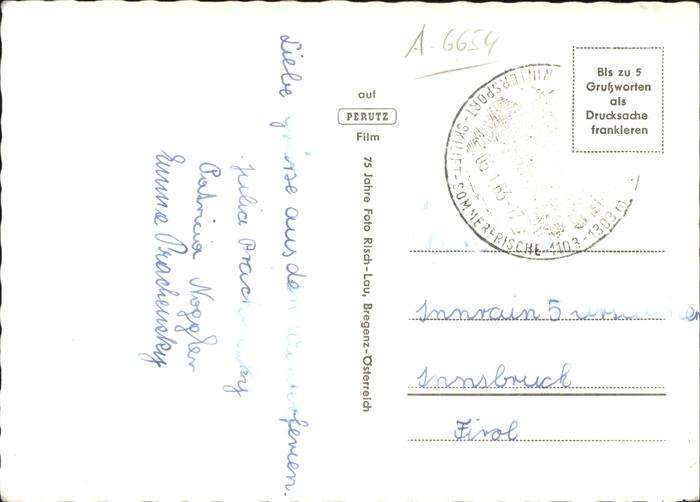 Liebe grüsse aus den Winterferien.
Julia Prachensky
Patricia Noggler
Emma Prachensky
auf
PERUTZ
Film
75 Jahre Foto Risch-Lau, Bregenz-Österreich
A-6654
WINTERSPORT-SKILIFT-SOMMERFRISCHE-1103-1303m
Bis zu 5
Grußworten
als
Drucksache
frankieren
Innrain 5
Innsbruck
Tirol